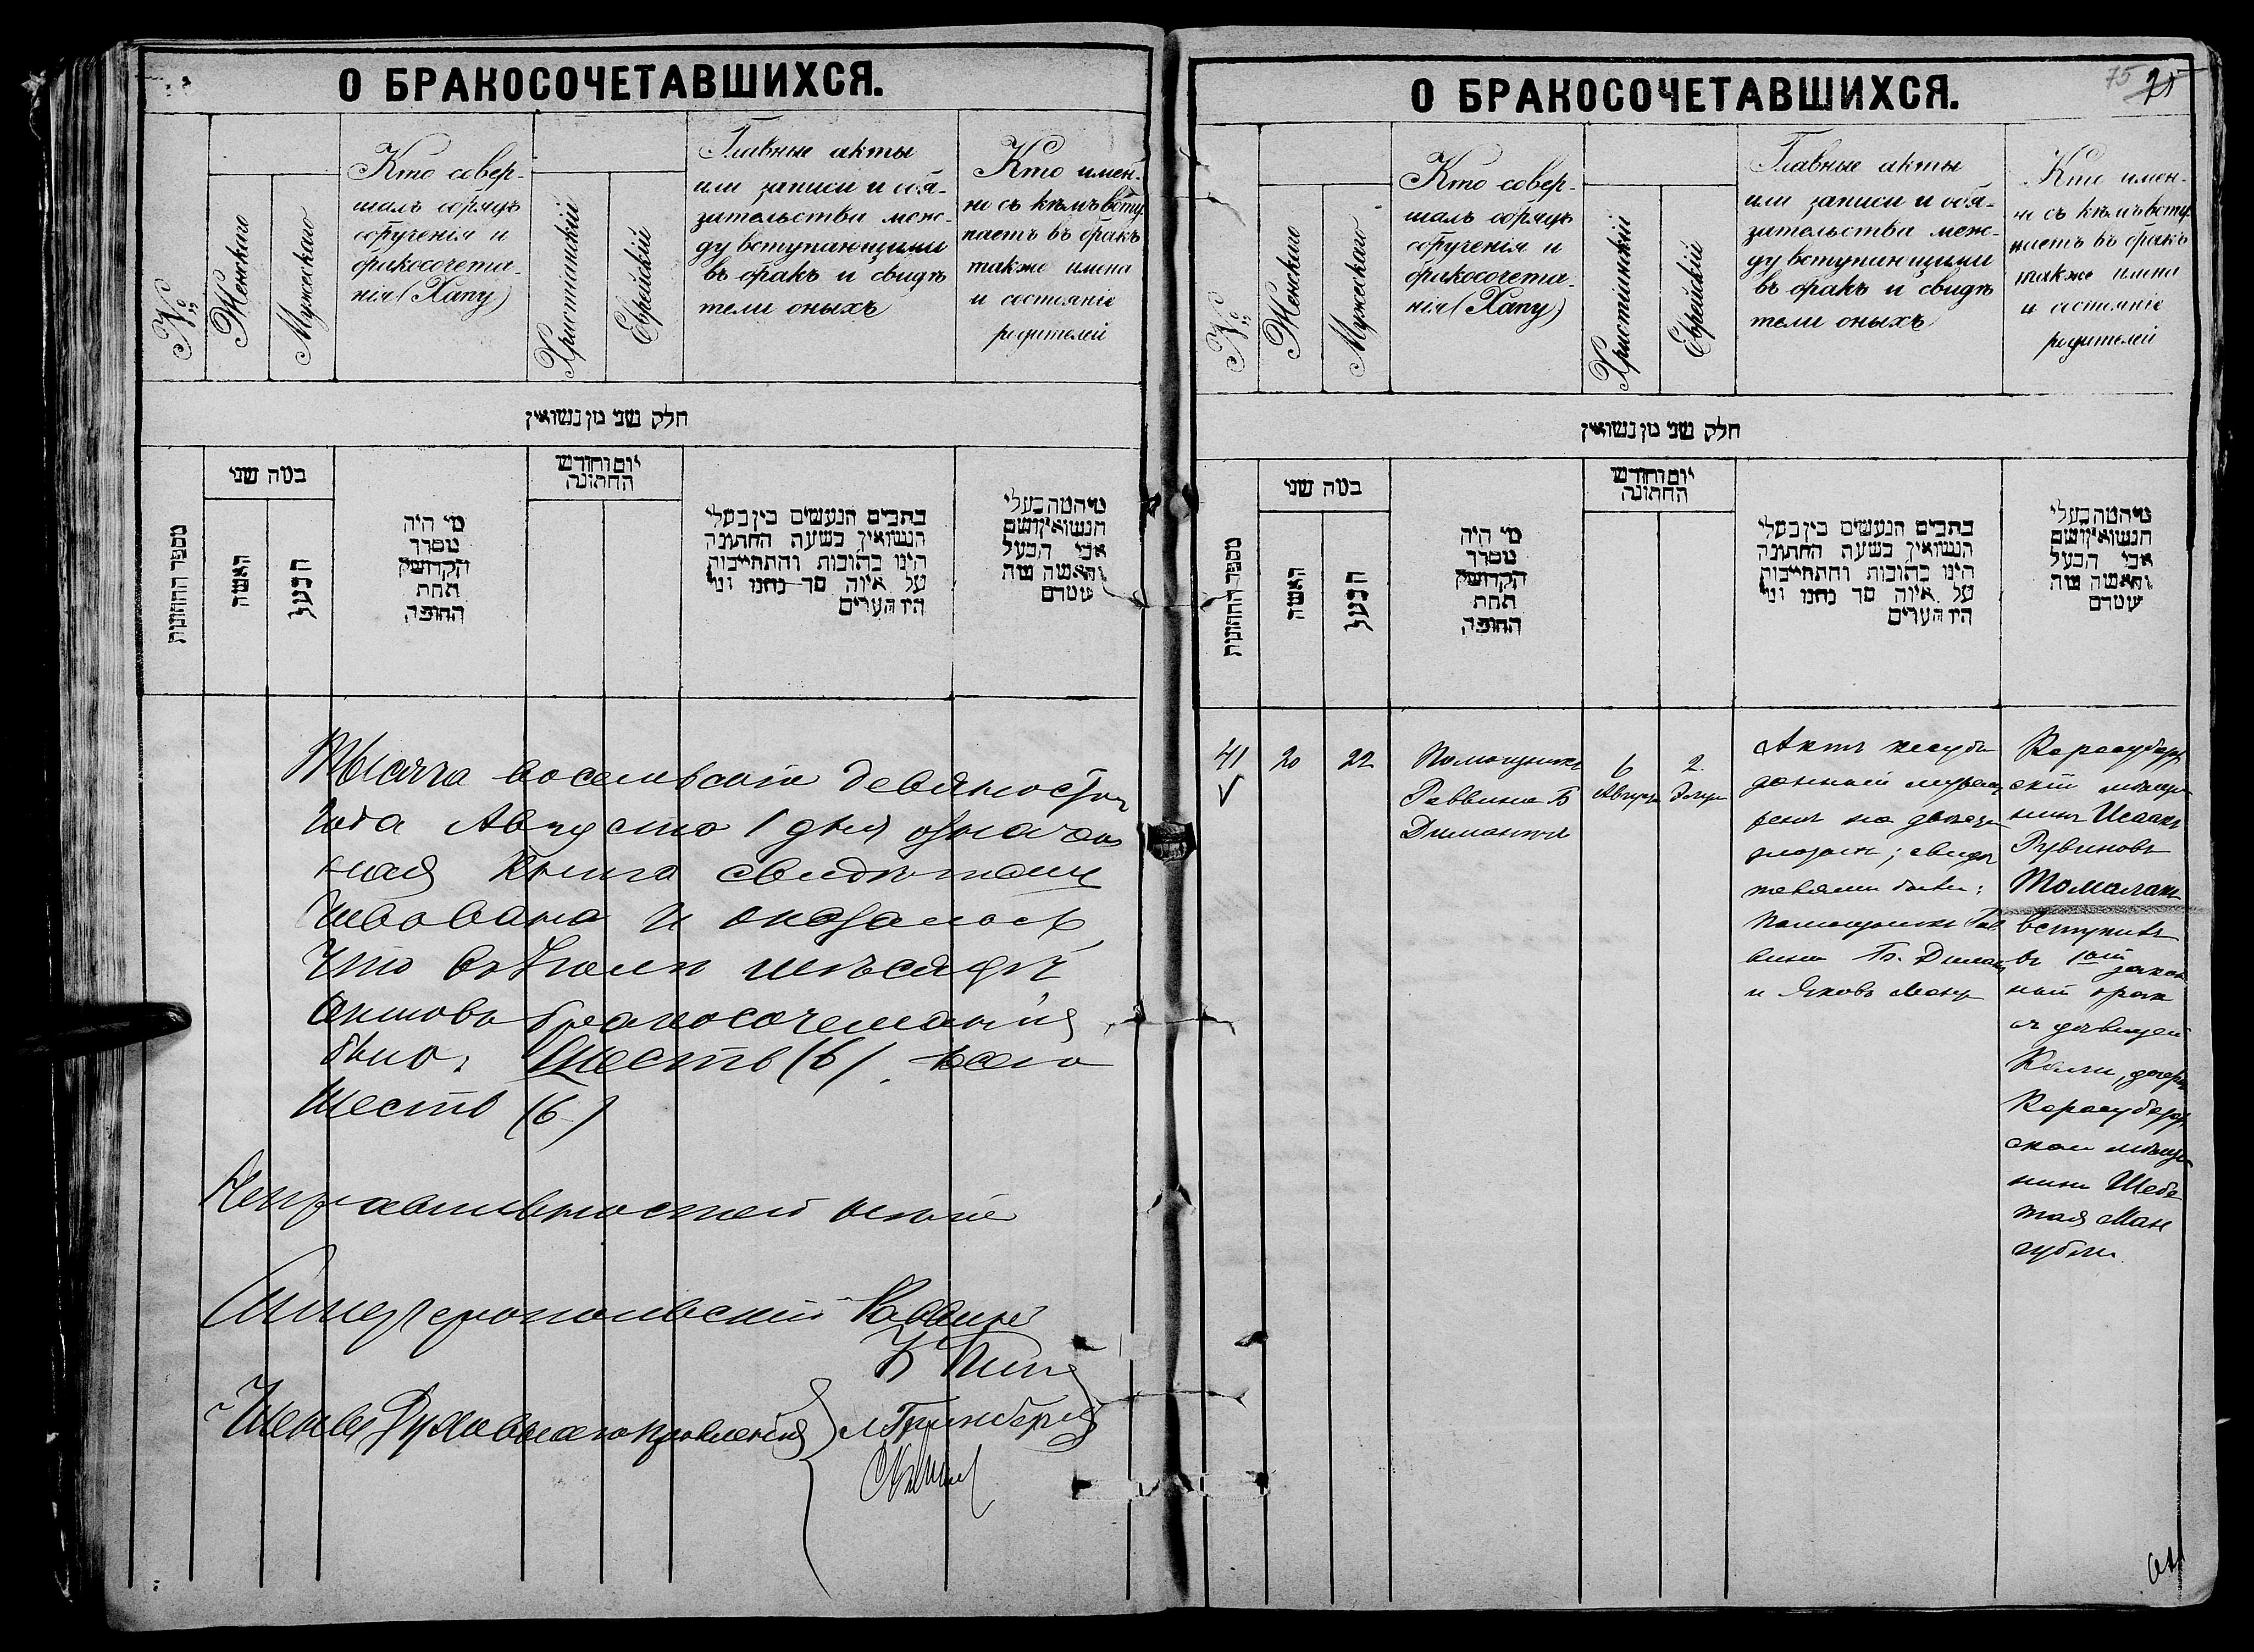 О БРАКОСОЧЕТАВШИХСЯ.
№
Женскаго
Мужескаго
Кто совер-
шалъ обрядъ
обрученія и
бракосочета-
нія (Хапу)
Христіанскій
Еврейскій
Главные акты
или записи и обя-
зательства меж-
ду вступающими
въ бракъ и свидѣ
тели оныхъ
Кто имен-
но съ кѣмъ всту
паетъ въ бракъ
также имена
и состояніе
родителей
חלק שני מן נשואין
מספר החתונות
במה שני
האשה
הבעל
מי היה
מסדר
הקדושין
תחת
החופה
יום וחודש
החתונה
כתבים הנעשים בין בעלי
הנשואין בשעת החתונה
היינו כתובות והתחייבות
על איזה סך נתנו ומי
היו העדים
מי המה בעלי
הנשואין ושם
אבי הבעל
והאשה מה
שמם
Тысяча восемьсотъ девяностаго
года Августа 1 дня означен
ная книга свидѣтель
ствована и оказалось
что въ Іюлѣ мѣсяцѣ
актовъ бракосочетанія
было: Шесть (6). всего
шесть (6)
Неправильностей нѣтъ
Симферопольскій Раввинъ
Члены Духовнаго правленія } Гринбергъ
О БРАКОСОЧЕТАВШИХСЯ.
75
№
Женскаго
Мужескаго
Кто совер-
шалъ обрядъ
обрученія и
бракосочета-
нія (Хапу)
Христіанскій
Еврейскій
Главные акты
или записи и обя-
зательства меж-
ду вступающими
въ бракъ и свидѣ
тели оныхъ
Кто имен-
но съ кѣмъ всту
паетъ въ бракъ
также имена
и состояніе
родителей
חלק שני מן נשואין
מספר החתונות
במה שני
האשה
הבעל
מי היה
מסדר
הקדושין
תחת
החופה
יום וחודש
החתונה
כתבים הנעשים בין בעלי
הנשואין בשעת החתונה
היינו כתובות והתחייבות
על איזה סך נתנו ומי
היו העדים
מי המה בעלי
הנשואין ושם
אבי הבעל
והאשה מה
שמם
41
20
22
Помощникъ
Раввина Б
Диманштейнъ
6
Августа
2
Элула
Актъ
данный
свидѣ
телями были:
Помощникъ Рав
вина Б. Диман
и Яковъ
Карасубазар
скій мѣща
нинъ Исаакъ
Рувиновъ
Томалакъ
вступилъ
въ 1ый закон
ный бракъ
съ дѣвицей
дочерью
Карасубазар
скаго мѣща
нина Шеба
тая Ман
губли.